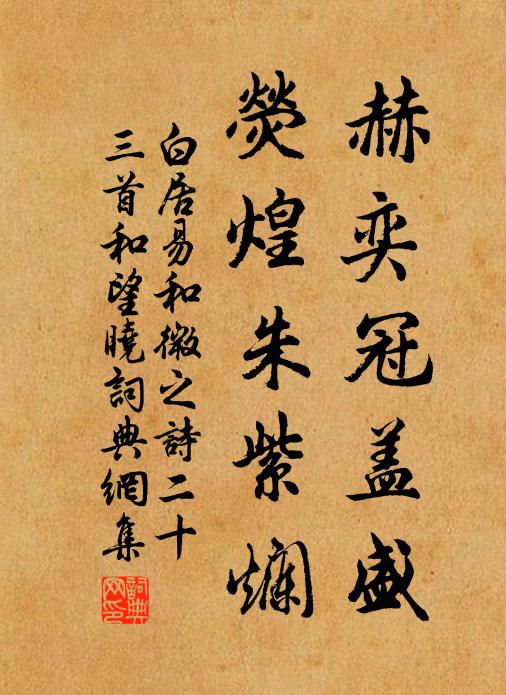 赫奕冠盖盛
熒煌朱紫爛
白居易和微之詩二十
三首和望曉詞典網集
詞典网印